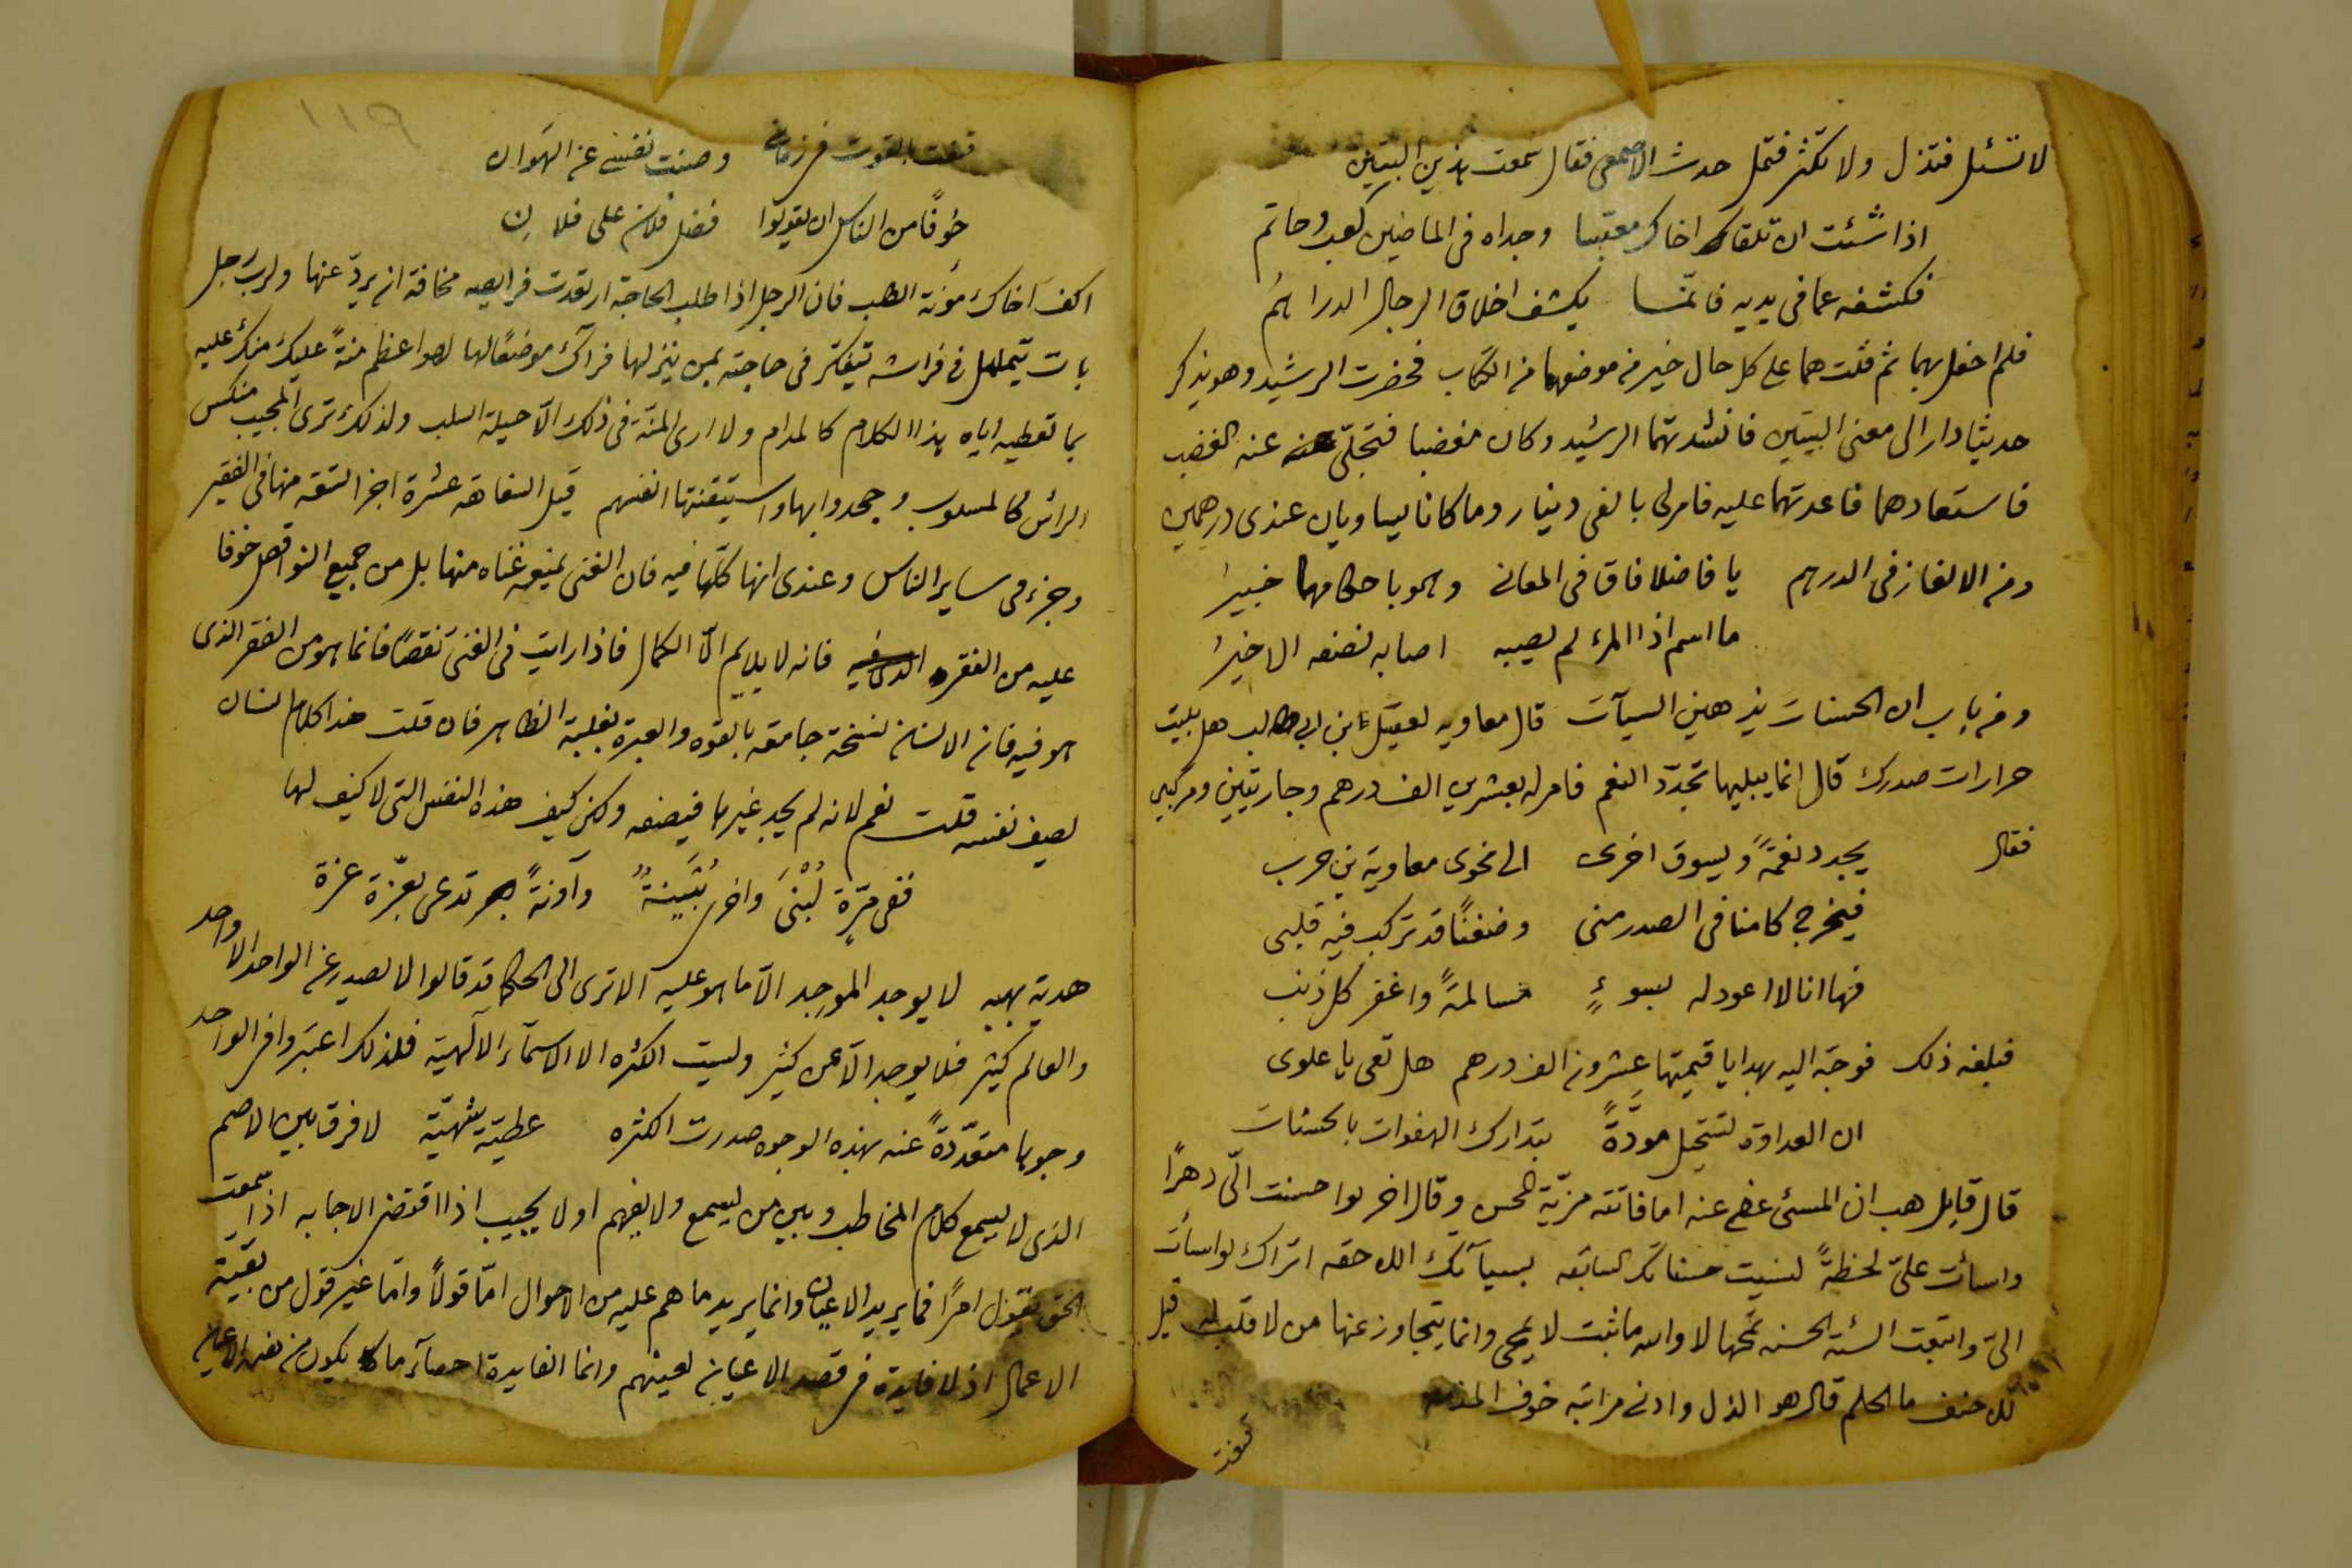 لا تسئل فتذل ولا تكثر فتمل حدث الاصمعى فقال سمعت بهذين البيتين
اذا شئت ان تلقاك اخاك معبسا وجداه فى الماضين كعب وحاتم
فكشفه عما فى يديه فانما يكشف اخلاق الرجال الدراهم
فلم احفل بهما ثم قلت هما على كل حال خير من موضعهما من الكتاب فحضرت الرشيد وهو يذكر
حديثا دار الى معنى البيتين فانشدتهما الرشيد وكان مغضبا فتجلى عنه الغضب
فاستعادهما فاعدتهما عليه فامر لى بالفى دينار وما كانا يساويان عندى درهمين
ومن الالغاز فى الدرهم يا فاضلا فاق فى المعانى وهو باحكامها خبير
ما اسم اذا المرء لم يصبه اصابه نصفه الاخير
ومن باب ان الحسنات يذهبن السيآت قال معاويه لعقيل ابن ابى طالب هل بليت
حرارات صدرك قال انما يبليها تجدّد النعم فامر له بعشرين الف درهم وجاريتين ومركبى
فقال يجدد نعمةً ويسوق اخرى الى نحوى معاوية بن حرب
فيخرج كامنا فى الصدر منى وضغنًا قد تركب فيه قلبى
فها انا لا اعود له بسوءٍ مسالمةً واغفر كل ذنب
فبلغه ذلك فوجّه اليه بهدايا قيمتها عشرون الف درهم هل تعى يا علوى
ان العداوة تستحيل مودّةً بتدارك الهفوات بالحسنات
قال قايل هب ان المسئ عفى عنه اما فاتته مزيّة المحسن وقال اخر لو احسنت الىّ دهرًا
واسأت علىّ لحظةً لنسيت حسناتك السابقه بسيآتك اللاحقه اتراك لو اسأت
الىّ واتبعت السئة الحسنه تمحها لا والله ما ثبت لا يمحى وانما يتجاوز عنها من لا قلب له قيل
للاحنف ما الحلم قال هو الذل وادنى مراتبه خوف المذمه
قنعت
١١٩
قنعت بالقوت فى زمانى وصنت نفسى عن الهوان
خوفًا من الناس ان يقولوا فضل فلان على فلانِ
اكف اخاك مؤنة الطلب فان الرجل اذا طلب الحاجة ارتعدت فرايصه مخافة ان يردّ عنها ولرب رجل
بات يتململ فى فراشه يتفكر فى حاجته بمن ينزلها فرآك موضعًا لها لهو اعظم منةً عليك منك عليه
بما تعطيه اياه هذا الكلام كالمدام ولا ارى المنّة فى ذلك الّا حيلة السلب ولذلك ترى المجيب منكس
الرأس كالمسلوب وجحدوا بها واستيقنتها انفسهم قيل السفاهة عشرة اجزا تسعه منها فى الفقير
وجزء فى ساير الناس وعندى انها كلّها فيه فان الغنى يمنعه غناه منها بل من جميع النواقص خوفا
عليه من الفقر فانه لا يلايم الّا الكمال فاذا رايت فى الغنى نقصًا فانما هو من الفقر الذى
هو فيه فان الانسان نسخة جامعة بالقوه والعبرة بغلبة الظاهر فان قلت هذا كلام انسان
يصف نفسه قلت نعم لانه لم يجد غيرها فيصفه ولكن كيف هذه النفس التى لا كيف لها
ففى مرّةٍ لُبْنَى واخرى بُثَينةٌ وآونةً تدعى بعزّة عزة
هدية بهيه لا يوجد الموجد الّا ما هو عليه الا ترى الى الحكما قد قالوا لا يصدر عن الواحد الا واحد
والعالم كثير فلا يوجد الّا عن كثير وليست الكثره الا الاسمآء الآلهية فلذلك اعتبروا فى الواحد
وجوها متعدّدةً عنه بهذه الوجوه صدرت الكثره عطيّة شهيّة لا فرق بين الاصم
الذى لا يسمع كلام المخاطب وبين من يسمع ولا يفهم او لا يجيب اذا اقتضى الاجابه اذا سمعت
الحق يقول امرًا فما يريد الاعيان وانما يريد ما هم عليه من الاحوال امّا قولًا وامّا غير قول من بقيّة
الاعمال اذ لا فايدة فى قصد الاعيان لعينهم وانما الفايدة احصآء ما يكون من هذه الاعيان